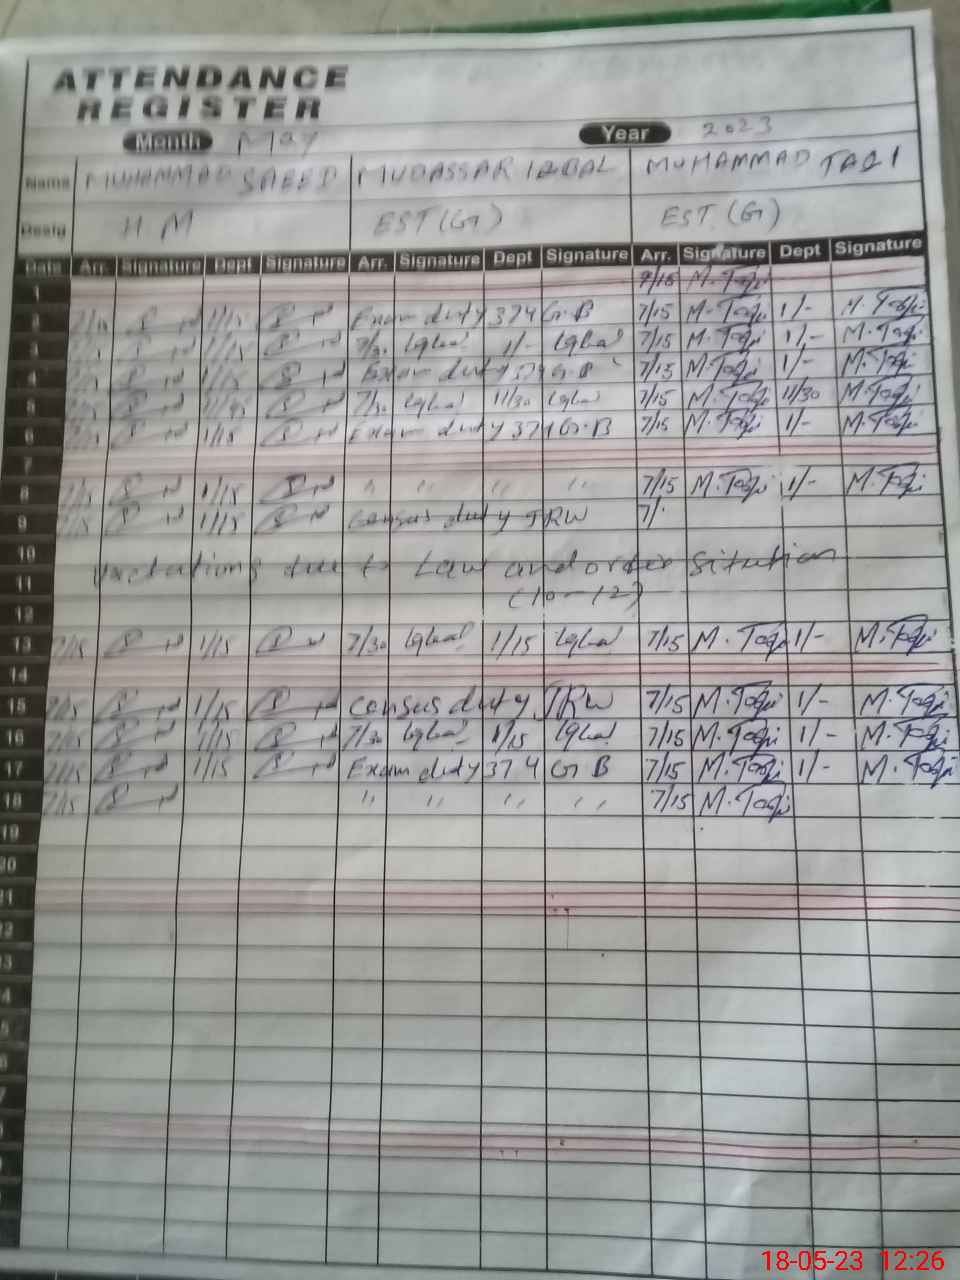 ATTENDANCE
REGISTER
Month May Year 2023
Name MUHAMMAD SAEED MUDASSAR IQBAL MUHAMMAD TAQI
Desig H.M EST (G) EST. (G)
Date Arr. Signature Dept Signature Arr. Signature Dept Signature Arr. Signature Dept Signature
1 M. Taqi
2 7/15 1/15 Exam duty 374 G.B 7/15 M. Taqi 1/- M. Taqi
3 1/15 7/30 Iqbal 1/- Iqbal 7/15 M. Taqi 1/- M. Taqi
4 1/15 Exam duty 374 G.B 7/15 M. Taqi 1/- M. Taqi
5 7/30 Iqbal 11/30 Iqbal 7/15 M. Taqi 11/30 M. Taqi
6 1/15 Exam duty 374 G.B 7/15 M. Taqi 1/- M. Taqi
7
8 7/15 1/15 " " " " 7/15 M. Taqi 1/- M. Taqi
9 7/15 1/15 Census duty JRW 7/
10 due to Law and order Sitution
11 (10-12)
12
13 7/15 1/15 7/30 Iqbal 1/15 Iqbal 7/15 M. Taqi 1/- M. Taqi
14
15 7/15 1/15 Census duty JRW 7/15 M. Taqi 1/- M. Taqi
16 7/15 1/15 7/30 Iqbal 1/15 Iqbal 7/15 M. Taqi 1/- M. Taqi
17 7/15 1/15 Exam duty 374 G B 7/15 M. Taqi 1/- M. Taqi
18 7/15 " " " " 7/15 M. Taqi
19
20
21
22
18-05-23 12:26